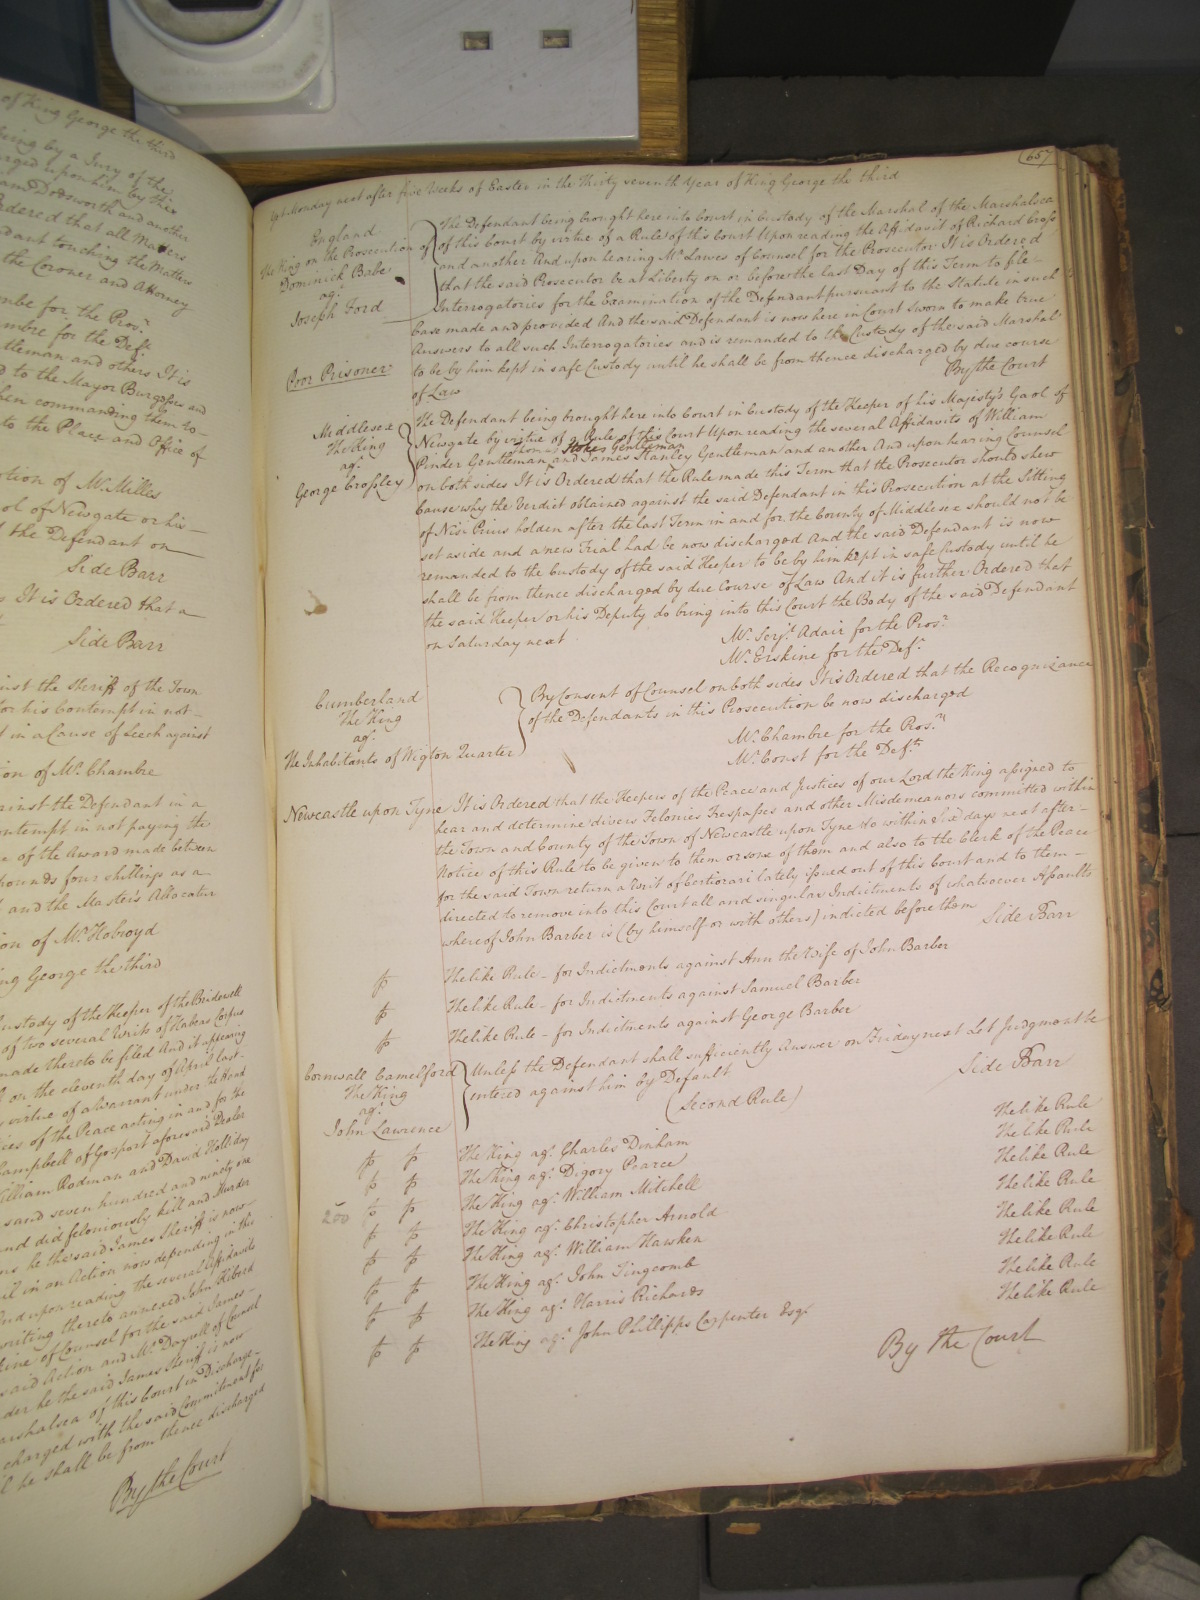 of King George the third
being by a Jury of the
charged upon him by this
Dodsworth and another
Ordered that all Matters
touching the Matters
the Coroner and Attorney
for the Pros.r
for the Def.t
Gentleman and others It is
to the Mayor Burgesses and
then commanding them to
to the Place and Office of
Motion of Mr. Milles
of Newgate or his
the Defendant on
Side Barr
It is Ordered that a
Side Barr
against the Sheriff of the Town
for his Contempt in not
in a Cause of Leech against
of Mr. Chambre
against the Defendant in a
Contempt in not paying the
of the Award made between
pounds four shillings as a
and the Master's Allocatur
of Mr. Holroyd
King George the third
Custody of the Keeper of the Bridewell
of two several Writs of Habeas Corpus
made thereto be filed And it appearing
on the eleventh day of April last
virtue of a Warrant under the Hand
of the Peace acting in and for the
Campbell of Gosport aforesaid Dealer
William Rodman and David Holliday
said seven hundred and ninety one
and did feloniously kill and Murder
he the said James Sheriff is now
in an Action now depending in this
And upon reading the several Affidavits
writing thereto annexed John Hibard
of Counsel for the said James
said Action and Mr. Dayrell of Counsel
he the said James Sheriff is now
Marshalsea of this Court in Discharge
charged with the said Commitment for
he shall be from thence discharged
By the Court
657
Monday next after five Weeks of Easter in the Thirty seventh Year of King George the third
England
The King on the Prosecution of
Dominick Babe
ag.t
Joseph Ford
Poor Prisoner
The Defendant being brought here into Court in Custody of the Marshal of the Marshalsea
of this Court by virtue of a Rule of this Court Upon reading the Affidavit of Richard Cross
and another And upon hearing Mr. Lawes of Counsel for the Prosecutor It is Ordered
that the said Prosecutor be at Liberty on or before the last Day of this Term to file
Interrogatories for the Examination of the Defendant pursuant to the Statute in such
Case made and provided And the said Defendant is now here in Court Sworn to make true
Answers to all such Interrogatories and is remanded to the Custody of the said Marshal
to be by him kept in safe Custody until he shall be from thence discharged by due course
of Law
By the Court
Middlesex
The King
ag.t
George Crossley
The Defendant being brought here into Court in Custody of the Keeper of his Majesty's Gaol of
Newgate by virtue of a Rule of this Court Upon reading the several Affidavits of William
Thomas Stokes Gentleman
Pinder Gentleman and James Stanley Gentleman and another And upon hearing Counsel
on both sides It is Ordered that the Rule made this Term that the Prosecutor should shew
Cause why the Verdict obtained against the said Defendant in this Prosecution at the Sitting
of Nisi Prius holden after the last Term in and for the County of Middlesex should not be
set aside and a new Trial had be now discharged And the said Defendant is now
remanded to the Custody of the said Keeper to be by him kept in safe Custody until he
shall be from thence discharged by due Course of Law And it is further Ordered that
the said Keeper or his Deputy do bring into this Court the Body of the said Defendant
on Saturday next
Mr. Serj.t Adair for the Pros.r
Mr. Erskine for the Def.t
Cumberland
The King
ag.t
The Inhabitants of Wigton Quarter
By Consent of Counsel on both sides It is Ordered that the Recognizance
of the Defendants in this Prosecution be now discharged
Mr. Chambre for the Pros.r
Mr. Const for the Def.ts
Newcastle upon Tyne
It is Ordered that the Keepers of the Peace and Justices of our Lord the King assigned to
hear and determine divers Felonies Trespasses and other Misdemeanors committed within
the Town and County of the Town of Newcastle upon Tyne do within Six days next after
Notice of this Rule to be given to them or some of them and also to the Clerk of the Peace
for the said Town return a Writ of Certiorari lately issued out of this Court and to them
directed to remove into this Court all and singular Indictments of whatsoever Assaults
whereof John Barber is (by himself or with others) indicted before them
Side Barr
The like Rule – for Indictments against Ann the Wife of John Barber
The like Rule – for Indictments against Samuel Barber
The like Rule – for Indictments against George Barber
Cornwall Camelford
The King
ag.t
John Lawrence
Unless the Defendant shall sufficiently Answer on Friday next Let Judgment be
entered against him by Default
(Second Rule)
Side Barr
The King ag.t Charles Dinham The like Rule
The King ag.t Digory Pearce The like Rule
The King ag.t William Mitchell The like Rule
200 The King ag.t Christopher Arnold The like Rule
The King ag.t William Hawken The like Rule
The King ag.t John Tingcomb The like Rule
The King ag.t Harris Richards The like Rule
The King ag.t John Phillipps Carpenter Esq.r The like Rule
By the Court